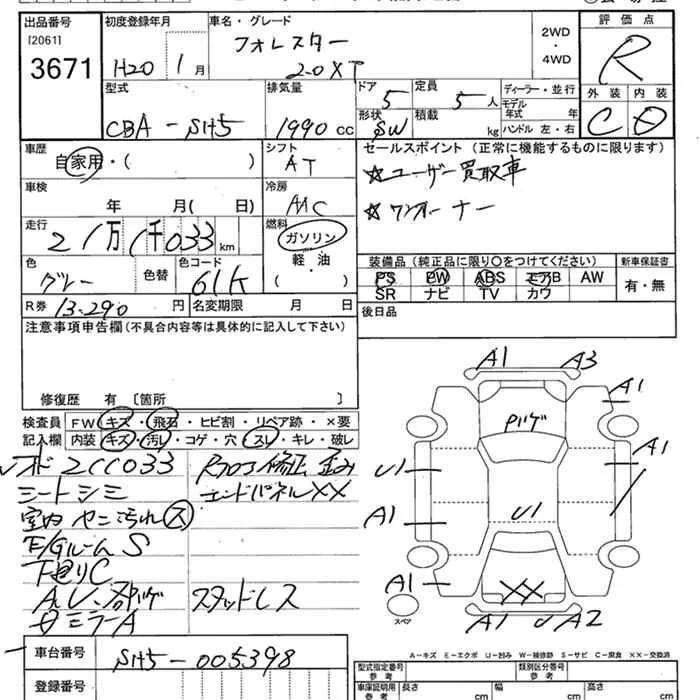 出品番号 初度登録年月 車名・グレード 評価点
[2061]
3671 H20 1月 フォレスター 2WD・4WD R
2.0XT
型式 排気量 ドア 5 定員 5人 ディーラー・並行 外装 内装
CBA-SH5 1990cc 形状 SW 積載 kg モデル年式 年 C D
ハンドル 左・右
車歴 シフト セールスポイント (正常に機能するものに限ります)
自家用・( ) AT ☆ユーザー買取車
車検 冷房 ☆ワンオーナー
年 月( 日) AAC
走行 燃料
21万1千033km ガソリン・軽・油 ( )
色 色替 色コード 装備品(純正品に限り〇をつけてください) 新車保証書
グレー 61K PS PW ABS エアB AW 有・無
SR ナビ TV カワ
R券 13.290円 名変期限 月 日 後日品
注意事項申告欄(不具合内容等は具体的に記入して下さい)
修復歴 有〔箇所 〕
検査員 FW キズ・飛石・ヒビ割・リペア跡・×要
記入欄 内装 キズ・汚レ・コゲ・穴・スレ・キレ・破レ
オド2CC033
シートシミ
室内ヤニ汚れ ス
E/GルームS
下廻りC
スタッドレス
ミラーA
修正 歪み
エンドパネルXX
A1 A3
A1
U1 A1
A1 U1
A1
XX
U1 A2
スペア
A-キズ E-エクボ U-凹み W-補修跡 S-サビ C-腐食 XX-交換済
車台番号 SH5-005398
登録番号
型式指定番号 参考 類別区分番号 参考
車庫証明用 参考 長さ cm 幅 cm 高さ cm